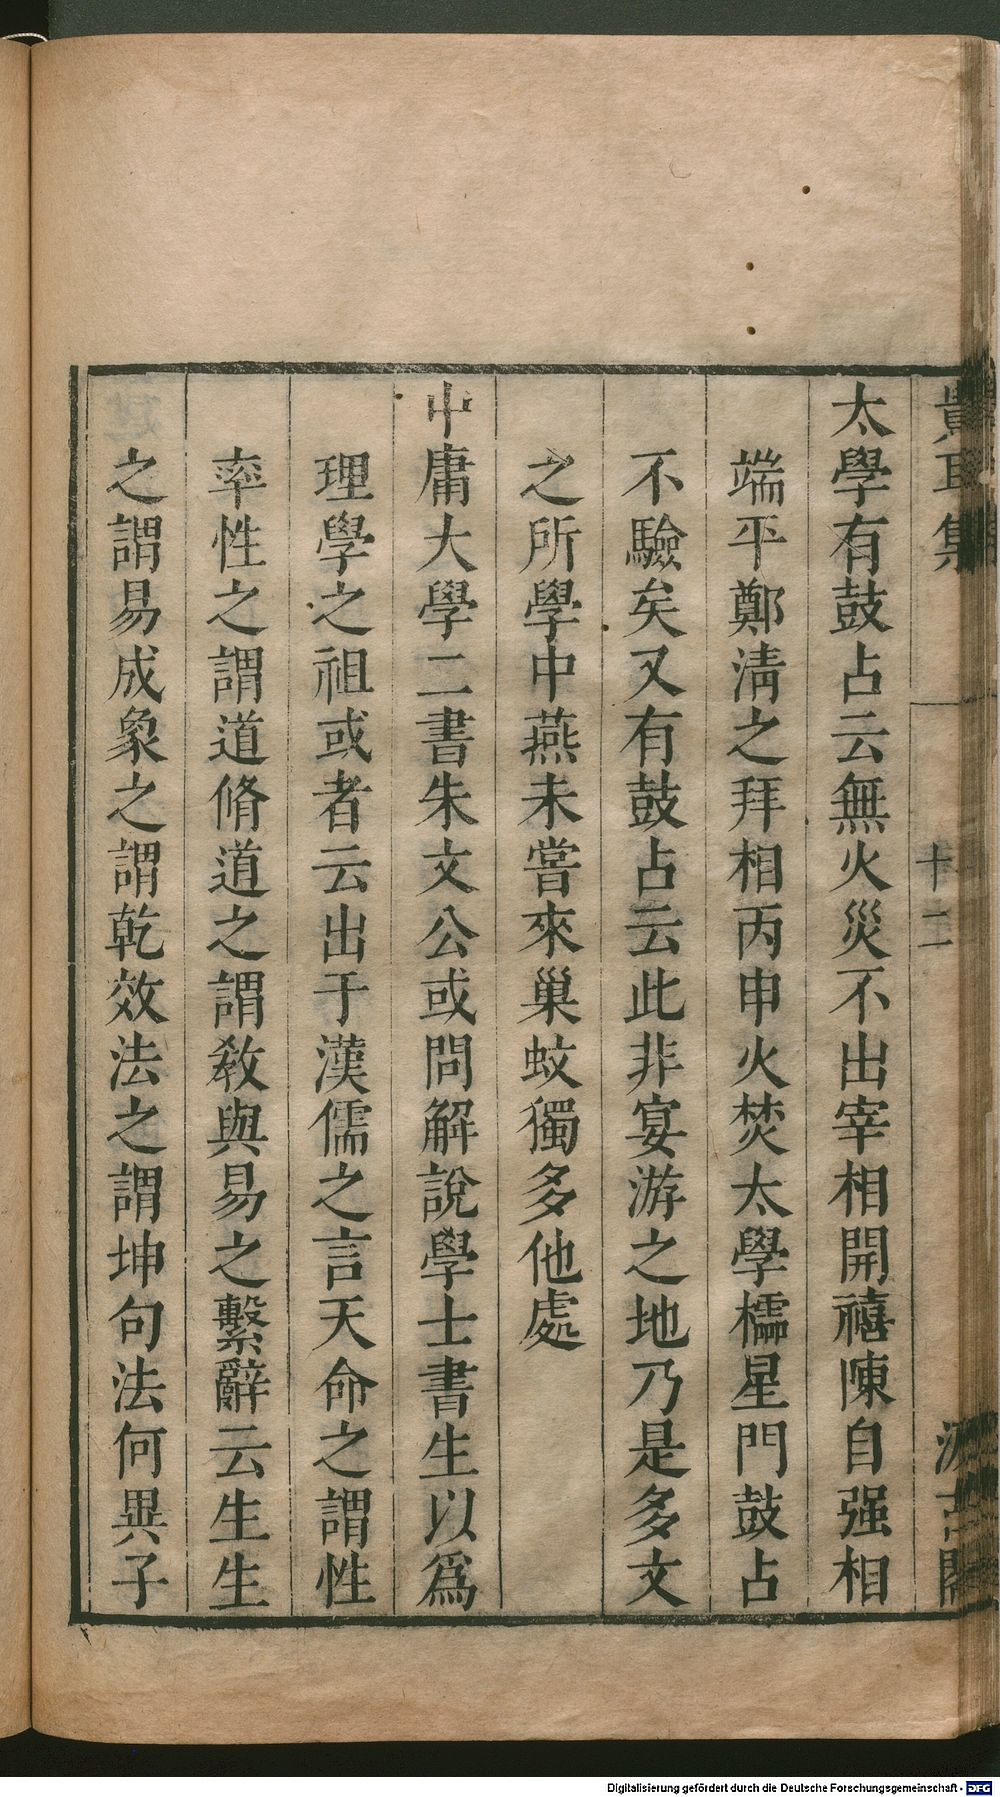 貴耳集 十二 汲古閣
太學有鼓占云無火災不出宰相開禧陳自强相
端平鄭淸之拜相丙申火焚太學櫺星門鼓占
不驗矣又有鼓占云此非宴游之地乃是多文
之所學中燕未嘗來巢蚊獨多他處
中庸大學二書朱文公或問解說學士書生以爲
理學之祖或者云出于漢儒之言天命之謂性
率性之謂道脩道之謂敎與易之繫辭云生生
之謂易成象之謂乾效法之謂坤句法何異子
Digitalisierung gefördert durch die Deutsche Forschungsgemeinschaft - DFG